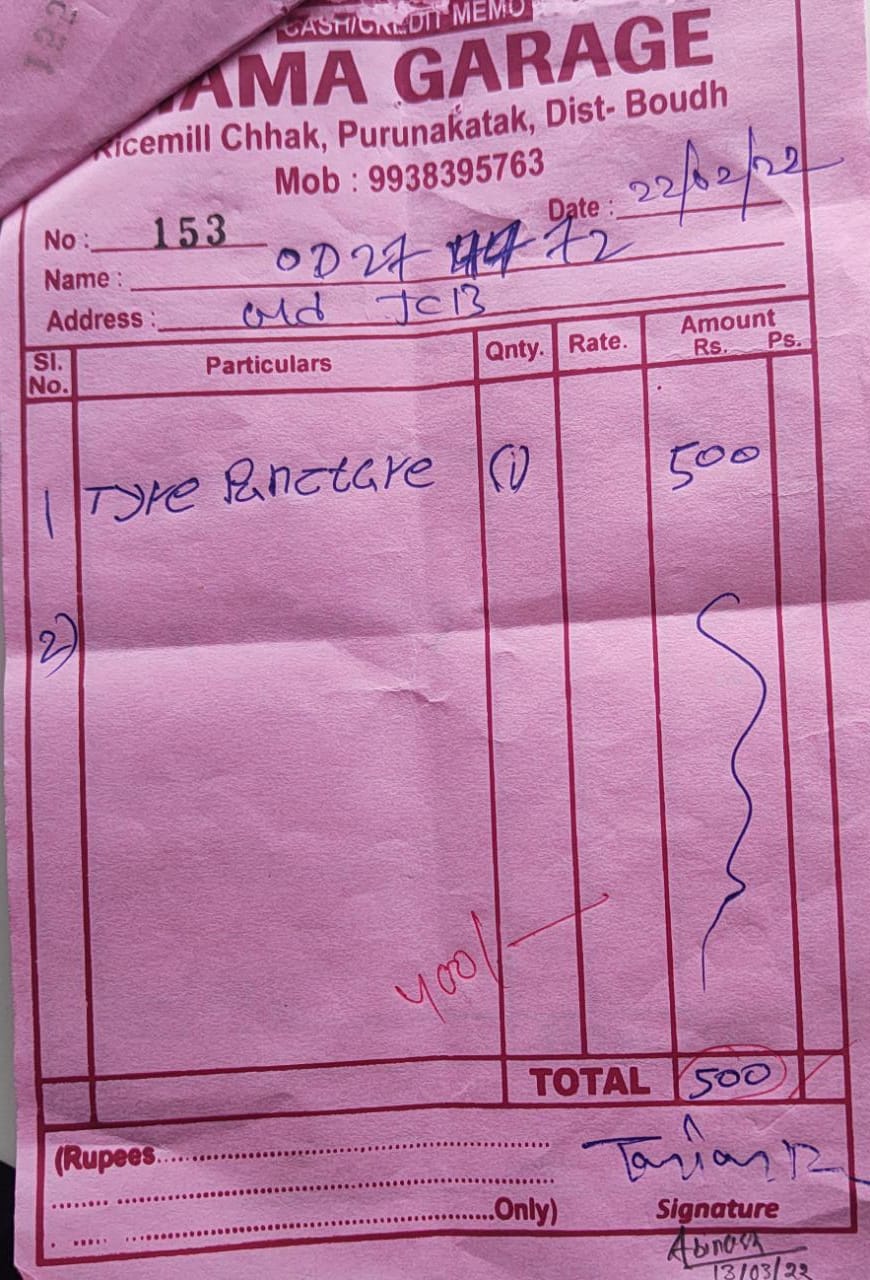 CASH/CREDIT MEMO
AMA GARAGE
Ricemill Chhak, Purunakatak, Dist- Boudh
Mob : 9938395763
No : 153 Date : 22/02/22
Name : OD27 72
Address : old JCB
Sl. No. Particulars Qnty. Rate. Amount Rs. Ps.
1 Tyre Puncture (1) 500
2)
400/-
TOTAL 500
(Rupees
Only)
Signature
Abinash
13/03/22